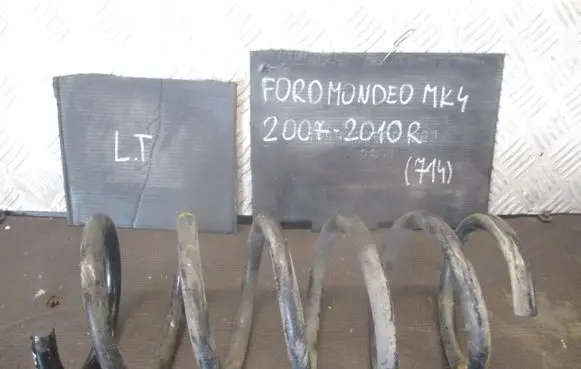 L.T
FORD MONDEO MK4
2007-2010R
(714)